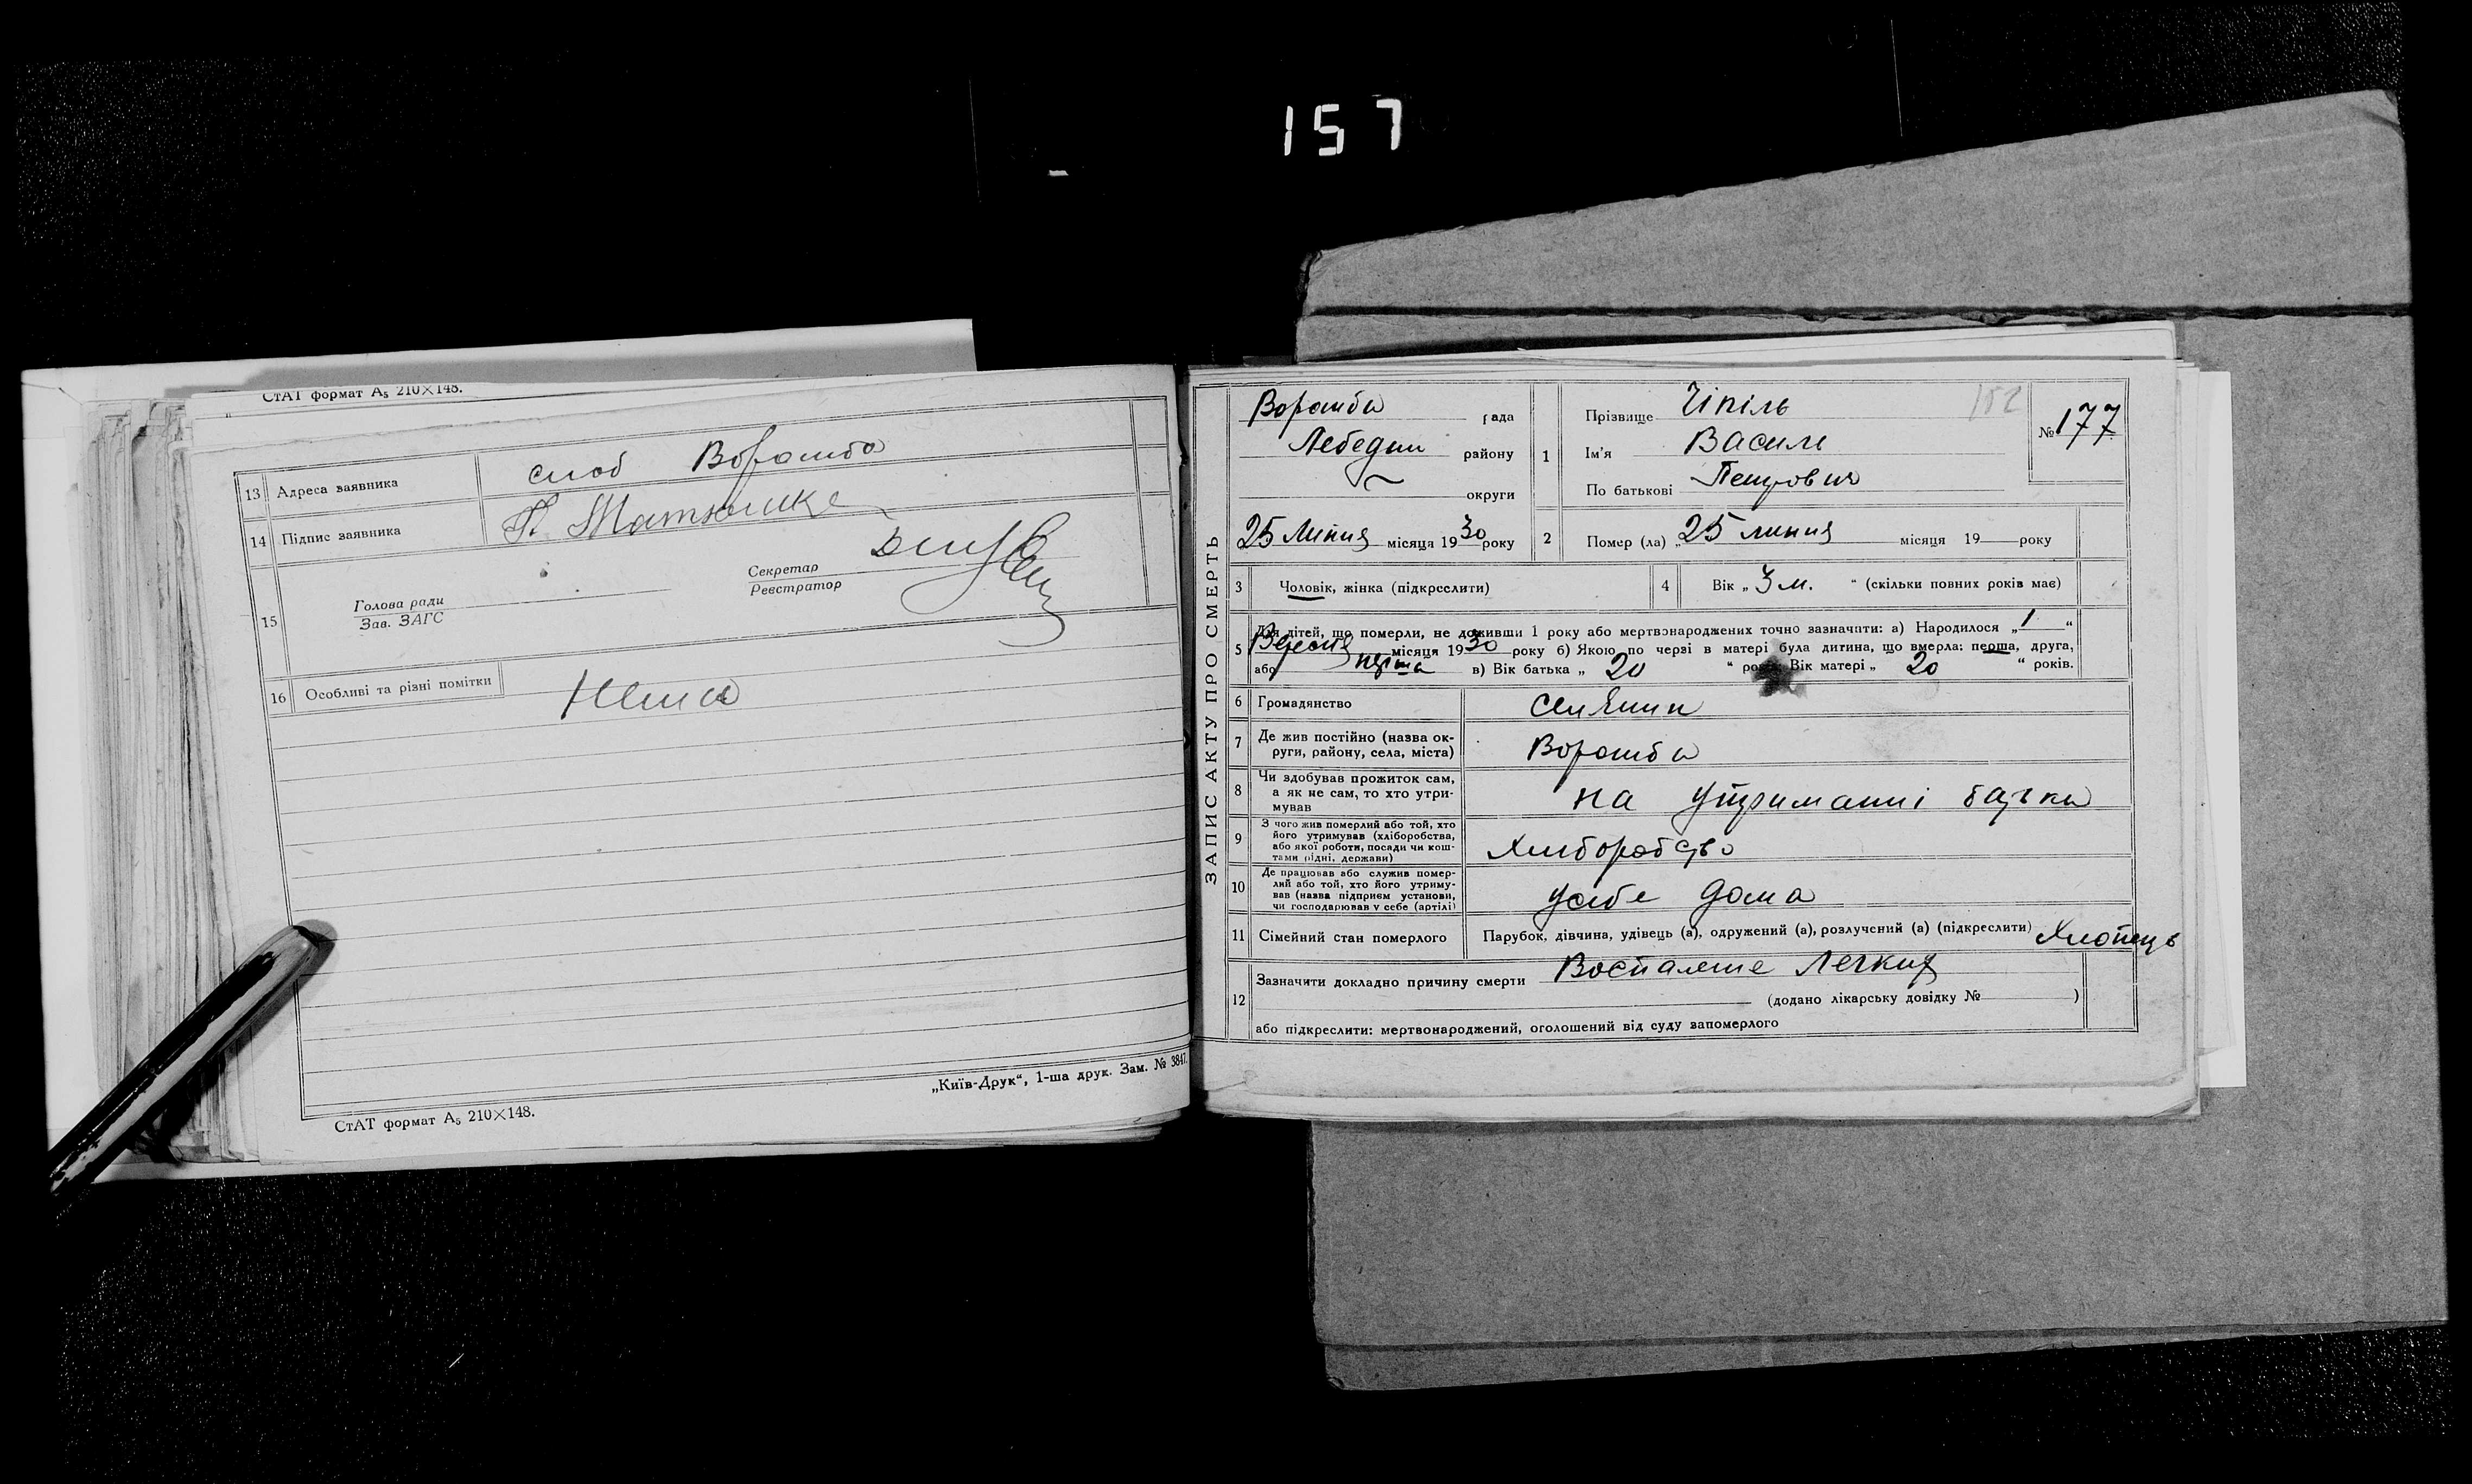 157
СтАТ формат А5 210×148.
13 Адреса заявника слоб Ворожба
14 Підпис заявника П.
15 Голова ради
Зав. ЗАГС
Секретар
Реєстратор
16 Особливі та різні помітки Нема
„Київ-Друк“, 1-ша друк. Зам. № 3847.
СтАТ формат А5 210×148.
ЗАПИС АКТУ ПРО СМЕРТЬ
Ворожба рада
Лебедин району
округи
25 Липня місяця 1930 року
1 Прізвище Чіпіль 152
Ім'я Василь
По батькові Петрович
№ 177
2 Помер (ла) „25 липня місяця 19 року
3 Чоловік, жінка (підкреслити)
4 Вік „ 3 м. “ (скільки повних років має)
5 Для дітей, що померли, не доживши 1 року або мертвонароджених точно зазначити: а) Народилося „ 1 “
місяця 1930 року б) Якою по черзі в матері була дитина, що вмерла: перша, друга,
або перша в) Вік батька „ 20 “ років. Вік матері „ 20 “ років.
6 Громадянство Селянин
7 Де жив постійно (назва округи, району, села, міста) Ворожба
8 Чи здобував прожиток сам, а як не сам, то хто утримував на утриманні батька
9 З чого жив померлий або той, хто його утримував (хліборобства, або якої роботи, посади чи коштами рідні, держави) Хліборобство
10 Де працював або служив померлий або той, хто його утримував (назва підприєм установи, чи господарював у себе (артілі) усебе дома
11 Сімейний стан померлого Парубок, дівчина, удівець (а), одружений (а), розлучений (а) (підкреслити) Хлопець
12 Зазначити докладно причину смерти Воспаление Легких
(додано лікарську довідку № )
або підкреслити: мертвонароджений, оголошений від суду запомерлого